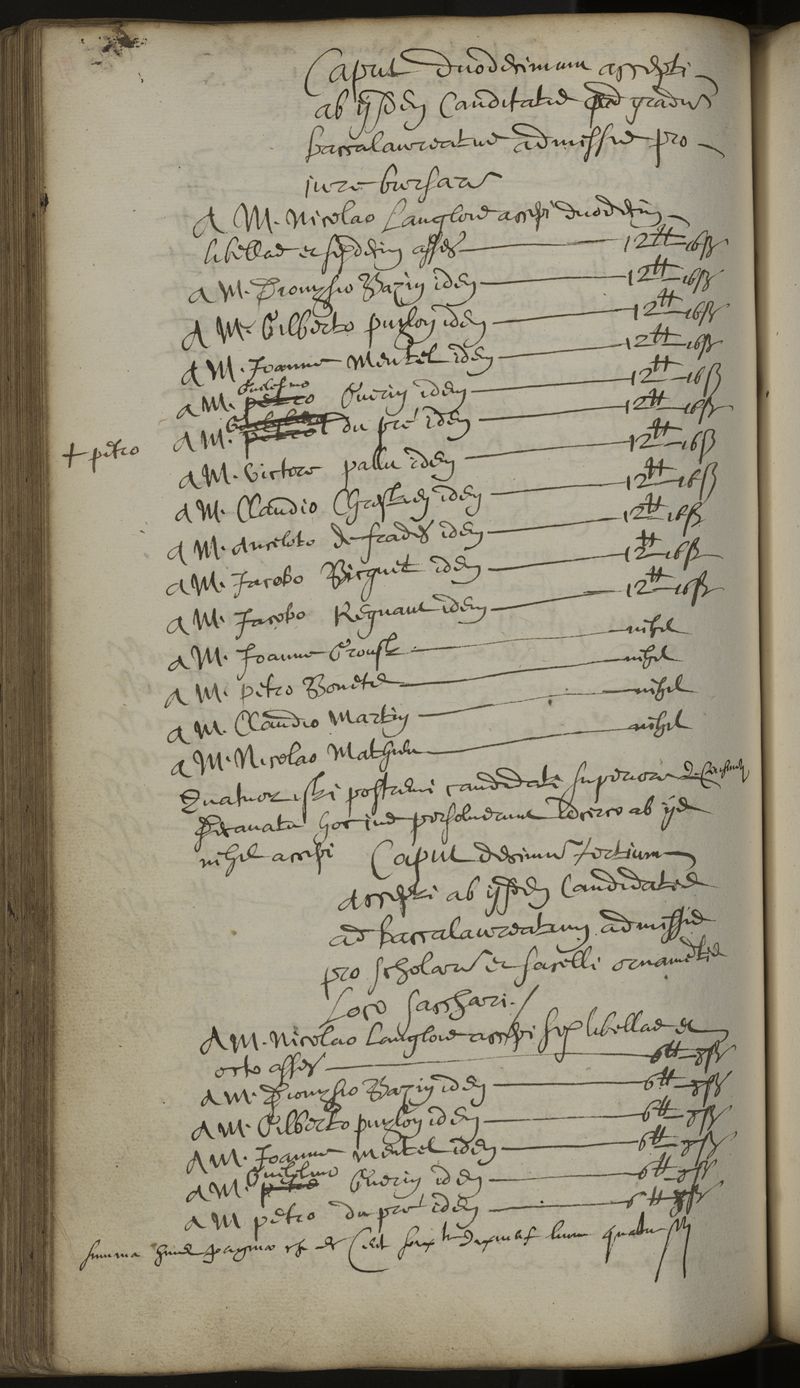 Caput duodecimum accepti
ab ijsdem Canditatis ad gradum
baccalaureatus admissis pro
jure bursarum
A M. Nicolao Langlois accepi duodecim
libellas et sexdecim asses 12tt 16ß
A M. Dionysio Bazin idem 12tt 16ß
A M. Gilberto puylon idem 12tt 16ß
A M. Joanne Mentel idem 12tt 16ß
Guilelmo
A M. petro Guerin idem 12tt 16ß
+ petro A M. du pré idem 12tt 16ß
A M. Victore pallu idem 12tt 16ß
A M. Claudio Chrestien idem 12tt 16ß
A M. Anceloto de frades idem 12tt 16ß
A M. Jacobo Bicquet idem 12tt 16ß
A M. Jacobo Regnaut idem 12tt 16ß
A M. Joanne nihil
A M. petro Bonete nihil
A M. Claudio Martin nihil
A M. Nicolao Mathieu nihil
Quatuor isti postremi candidati superiore
Decanatu hoc jus persoluerunt idcirco ab ijs
nihil accepi Caput decimum tertium
accepti ab ijsdem Candidatis
ad baccalaureatum admissis
pro scholarum et sacelli ornamentis
Loco sacchari.
A M. Nicolao Langlois accepi sex libellas et
octo asses 6tt 8ß
A M. Dionysio Bazin idem 6tt 8ß
A M. Gilberto puylon idem 6tt 8ß
A M. Joanne mentel idem 6tt 8ß
Guilelmo
A M. petro Guerin idem 6tt 8ß
A M petro du pré idem 6tt 8ß
summa huius paginae est